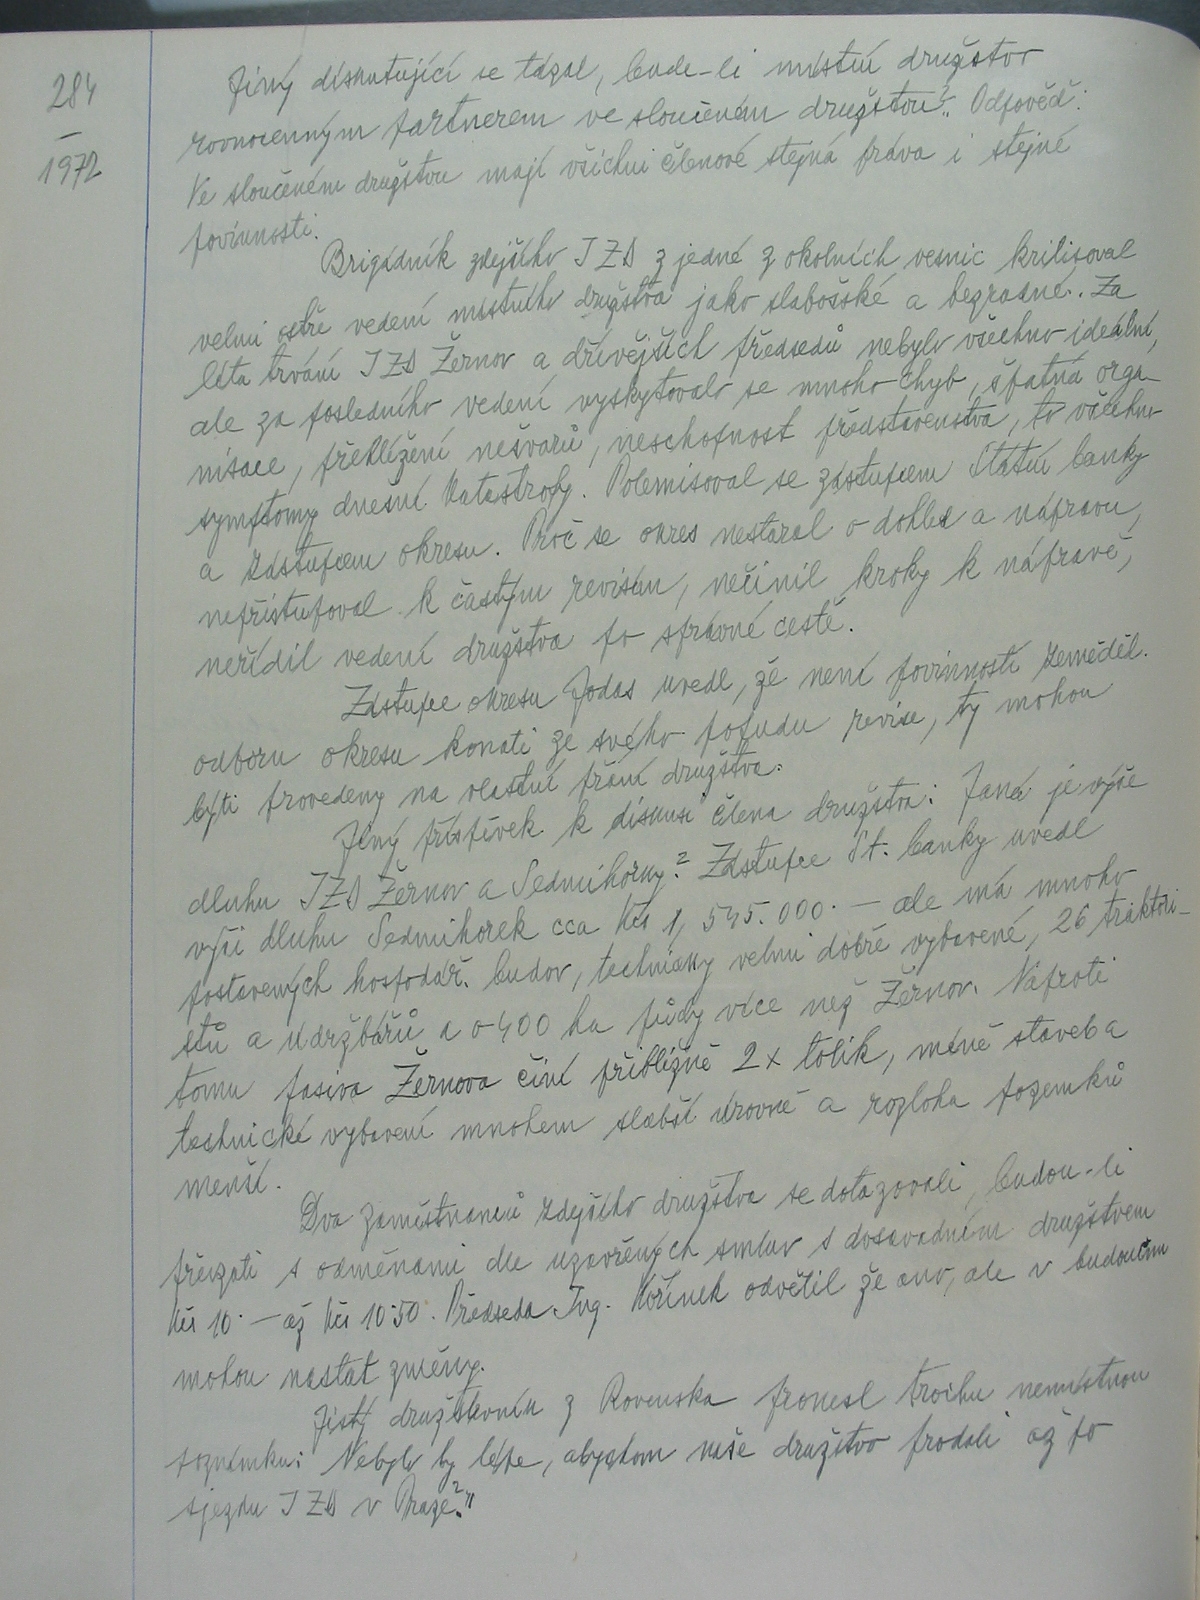 284
—
1972
Jiný diskutující se tázal, bude-li místní družstvo
rovnocenným partnerem ve sloučeném družstvu?" Odpověď:
Ve sloučeném družstvu mají všichni členové stejná práva i stejné
povinnosti.
Brigádník zdejšího JZD z jedné z okolních vesnic kritisoval
velmi ostře vedení místního družstva jako slabošské a bezradné. Za
léta trvání JZD Žernov a dřívějších předsedů nebylo všechno ideální,
ale za posledního vedení vyskytovalo se mnoho chyb, špatná orga-
nisace, přehlížení nešvarů, neschopnost představenstva, to všechno
symptomy dnešní katastrofy. Polemisoval se zástupcem Státní banky
a zástupcem okresu. Proč se okres nestaral o dohled a nápravu,
nepřistupoval k častým revisím, nečinil kroky k nápravě,
neřídil vedení družstva po správné cestě.
Zástupce okresu Jodas uvedl, že není povinností zeměděl.
odboru okresu konati ze svého popudu revise, ty mohou
býti provedeny na vlastní přání družstva.
Jiný příspěvek k diskusi člena družstva: Jaká je výše
dluhu JZD Žernov a Sedmihorky? Zástupce St. banky uvedl
výši dluhu Sedmihorek cca Kčs 1,545.000.— ale má mnoho
postavených hospodář. budov, technicky velmi dobře vybavené, 26 traktori-
stů a údržbářů a o 400 ha půdy více než Žernov. Naproti
tomu pasiva Žernova činí přibližně 2x tolik, méně staveb a
technické vybavení mnohem slabší úrovně a rozloha pozemků
menší.
Dva zaměstnanci zdejšího družstva se dotazovali, budou-li
převzati s odměnami dle uzavřených smluv s dosavadním družstvem
Kčs 10.— až Kčs 10.50. Předseda Ing. Kořínek odvětil že ano, ale v budoucnu
mohou nastat změny.
Jistý družstevník z Rovenska pronesl trochu nemístnou
poznámku: Nebylo by lépe, abychom naše družstvo prodali až po
sjezdu JZD v Praze?"